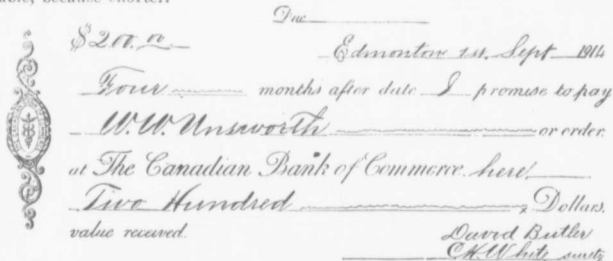 because shorter.
Due
$200.00
Edmonton 1st. Sept 1914
Four months after date I promise to pay
W.W. Unsworth or order
at The Canadian Bank of Commerce here
Two Hundred Dollars,
value received.
David Butler
C.K. White surety